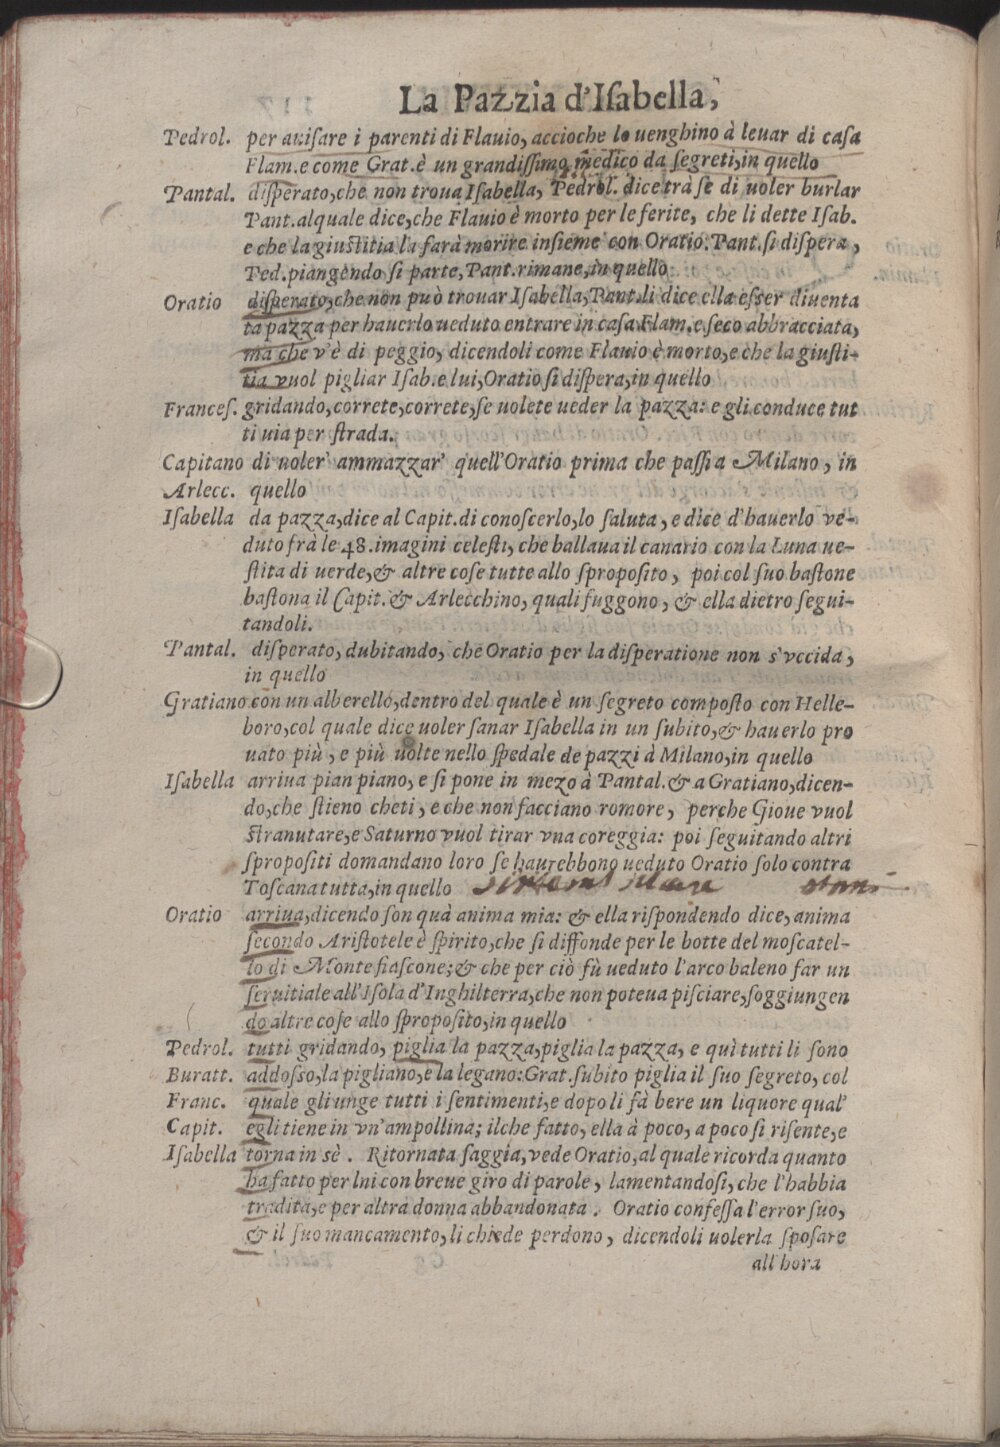 La Pazzia d'Iſabella,
Pedrol. per auiſare i parenti di Flauio, accioche lo uenghino à leuar di caſa
Flam. e come Grat. è un grandiſſimo medico da ſegreti, in quello
Pantal. diſperato, che non troua Iſabella, Pedrol. dice trà ſe di uoler burlar
Pant. al quale dice, che Flauio è morto per le ferite, che li dette Iſab.
e che la giuſtitia la farà morire inſieme con Oratio: Pant. ſi diſpera,
Ped. piangendo ſi parte, Pant. rimane, in quello
Oratio diſperato, che non può trouar Iſabella, Pant. li dice ella eſſer diuenta
ta pazza per hauerlo ueduto entrare in caſa Flam. e ſeco abbracciata,
ma che v'è di peggio, dicendoli come Flauio è morto, e che la giuſti-
tia vuol pigliar Iſab. e lui, Oratio ſi diſpera, in quello
Franceſ. gridando, correte, correte, ſe uolete ueder la pazza: e gli conduce tut
ti uia per ſtrada.
Capitano di uoler' ammazzar' quell'Oratio prima che paſſi a Milano, in
Arlecc. quello
Iſabella da pazza, dice al Capit. di conoſcerlo, lo ſaluta, e dice d'hauerlo ve-
duto frà le 48. imagini celeſti, che ballaua il canario con la Luna ue-
ſtita di uerde, & altre coſe tutte allo ſpropoſito, poi col ſuo baſtone
baſtona il Capit. & Arlecchino, quali fuggono, & ella dietro ſegui-
tandoli.
Pantal. diſperato, dubitando, che Oratio per la diſperatione non s'vccida,
in quello
Gratiano con un alberello, dentro del quale è un ſegreto compoſto con Helle-
boro, col quale dice uoler ſanar Iſabella in un ſubito, & hauerlo pro
uato più, e più uolte nello ſpedale de pazzi à Milano, in quello
Iſabella arriua pian piano, e ſi pone in mezo à Pantal. & a Gratiano, dicen-
do, che ſtieno cheti, e che non facciano romore, perche Gioue vuol
ſtranutare, e Saturno vuol tirar vna coreggia: poi ſeguitando altri
ſpropoſiti domandano loro ſe haurebbono ueduto Oratio ſolo contra
Toſcana tutta, in quello
Oratio arriua, dicendo ſon quà anima mia: & ella riſpondendo dice, anima
ſecondo Ariſtotele è ſpirito, che ſi diffonde per le botte del moſcatel-
lo di Monte fiaſcone; & che per ciò fù ueduto l'arco baleno far un
ſeruitiale all'Iſola d'Inghilterra, che non poteua piſciare, ſoggiungen
do altre coſe allo ſpropoſito, in quello
Pedrol. tutti gridando, piglia la pazza, piglia la pazza, e quì tutti li ſono
Buratt. addoſſo, la pigliano, e la legano: Grat. ſubito piglia il ſuo ſegreto, col
Franc. quale gli unge tutti i ſentimenti, e dopo li fà bere un liquore qual'
Capit. egli tiene in vn'ampollina; ilche fatto, ella à poco, a poco ſi riſente, e
Iſabella torna in sè. Ritornata ſaggia, vede Oratio, al quale ricorda quanto
ha fatto per lni con breue giro di parole, lamentandoſi, che l'habbia
tradita, e per altra donna abbandonata. Oratio confeſſa l'error ſuo,
& il ſuo mancamento, li chiede perdono, dicendoli uolerla ſpoſare
all hora